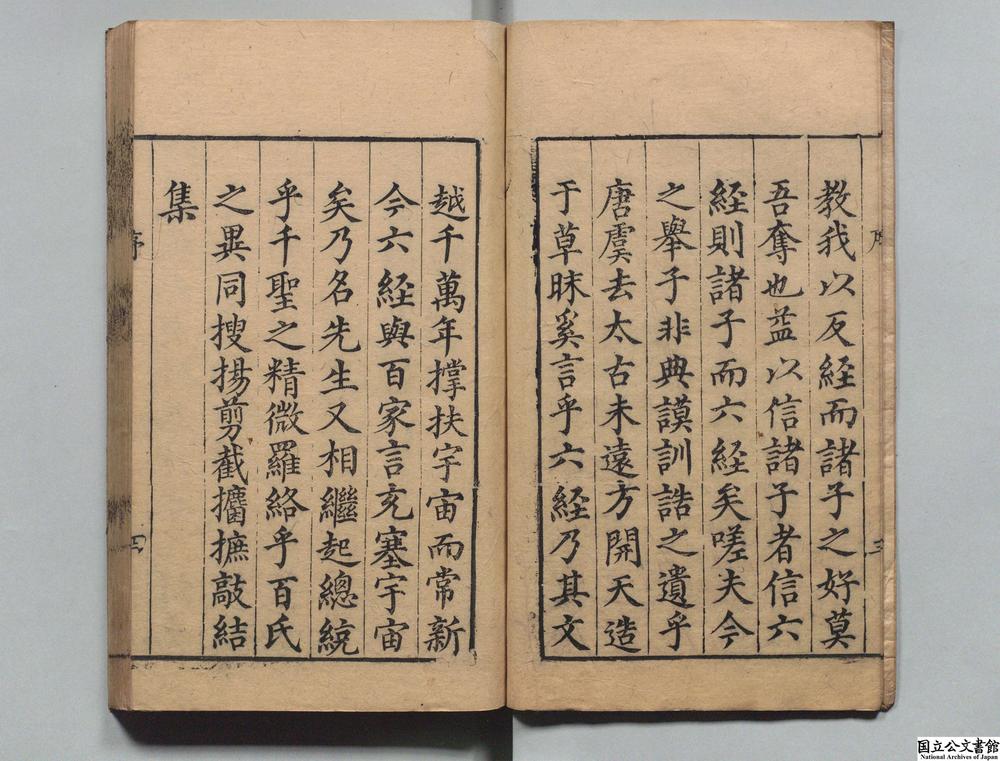 教我以反經而諸子之好莫
吾奪也葢以信諸子者信六
經則諸子而六經矣嗟夫今
之舉子非典謨訓誥之遺乎
唐虞去太古未遠方開天造
于草昧奚言乎六經乃其文
越千萬年撑扶宇宙而常新
今六經與百家言充塞宇宙
矣乃名先生又相繼起總統
乎千聖之精微羅絡乎百氏
之異同搜揚剪截攟摭敲結
集
序
四
三
国立公文書館
National Archives of Japan